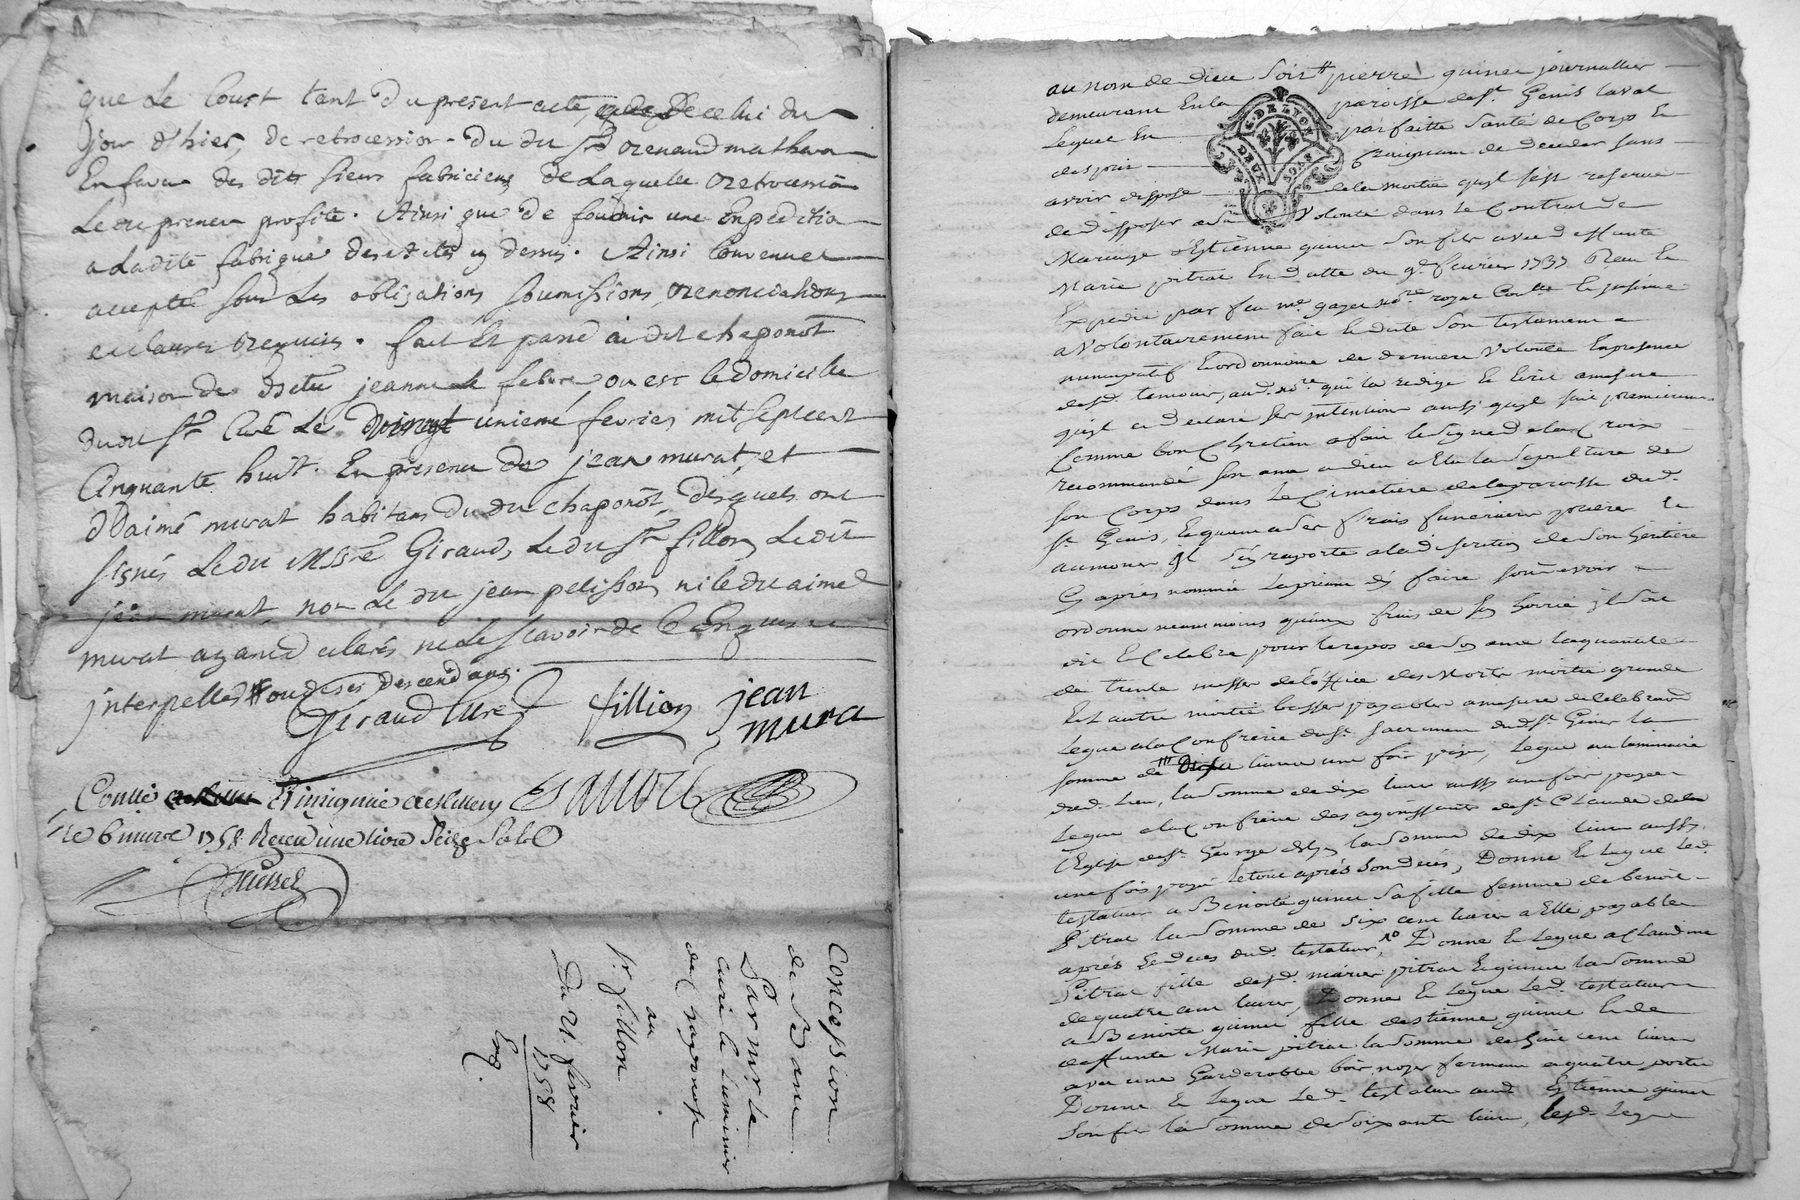 que Le Coust tant Du present acte, que De celui du
Jour d'hier, de retrocession Du du Sr renaud mathieu
En faveur des dits sieurs fabriciens de Laquelle retrocession
Ledu preneur profite. Ainsi que de fournir une Expedition
a Ladite fabrique desdites cy dessus. Ainsi Convenu et
accepté sous Les obligations soumissions renonciations
et clauses requises. fait Et passé audit chaponost
maison de jeanne Le febvre, ou est le domicille
dudit Sr Curé Le vingt unieme fevrier mil sept cent
Cinquante huit. En presence de jean murat, et
D'aimé murat habitans du du chaponost, desquels ont
signés Ledu Mssre Giraud, Ledu Sr fillion, Ledit
jean murat, non Le du jean pelisson, ni le du aimé
murat ayant declarés ne le sçavoir de Ce Enquis et
interpellés ou des descendans.
Giraud Curé fillion jean
mura
Conllé Et insinué
Le 6 mars 1758 Receu une livre Seize Sols
Concession
de Banc
Par mr. le
curé le luminier
de Chaponost
au
Sr. fillon
Du 21. fevrier
1758
Exp.
au nom de dieu soit pierre guinee journallier
demeurant En la paroisse de St. Genis Laval
Lequel En parfaitte santé de Corps Et
desprit Craignant de deceder sans
avoir disposé de la moitié qu'il s'est reservé
de disposer a sa Volonté dans Le Contrat de
Mariage d'Estienne guinee son fils avec deffunte
Marie pitrat En datte du 9e fevrier 1737 Receu Et
Expedié par feu me. gayet nore. royal
a Volontairement fait Et dicté Son testament
nuncupatif Et ordonnance de derniere Volonté En presence
desd. temoins, aud. nore. qui la redigé Et Ecrit a mesure
qu'il a declaré ses intentions ainsi qu'il suit premierement
Comme bon Chretien a fait le Signe de la Croix
recommandé Son ame a dieu a Elu la Sepulture de
Son Corps dans Le Cimetiere de la paroisse dud.
St. Genis, Et quant a Ses frais funeraires prieres Et
aumones il S'en raporte a la discretion de Son heritiere
Cy après nommée La priant d'en faire Son devoir
ordonne neanmoins qu'aux frais de Son hoirie il Soit
dit Et Celebré pour le repos de Son ame la quantité
de trente messes de l'office des Morts moitié grande
Et l'autre moitié basses payables a mesure de Celebration
Legue a la Confrerie du St. Sacrement dud St. Genis la
Somme de livres une fois payée, Legue au luminaire
dud. Lieu, la Somme de dix livres aussy une fois payée
Legue a la Confrerie des agonissants de St. Claude de
l'Eglise de St. George la Somme de dix livres aussy
une fois payé Et tout après Son deces, Donne Et Legue Led.
testateur a Benoite guinee Sa fille femme de benoit
Pitrat la Somme de Six cent livres a Elle payable
après Le deces dud. testateur, Donne Et Legue a Claudine
Pitrat fille desd. mariés pitrat Et guinee la Somme
de quatre cent livres, Donne Et Legue Led. testateur
a Benoite guinee fille d'estienne guinee Et de
deffunte Marie pitrat la Somme de cent livres
avec une Garderobbe bois noyer fermant a quatre portes
Donne Et Legue Led. testateur aud. Estienne guinee
Son fils la Somme de Soixante livres, Led. Legue
G. DE LYON
DEUX SOLS